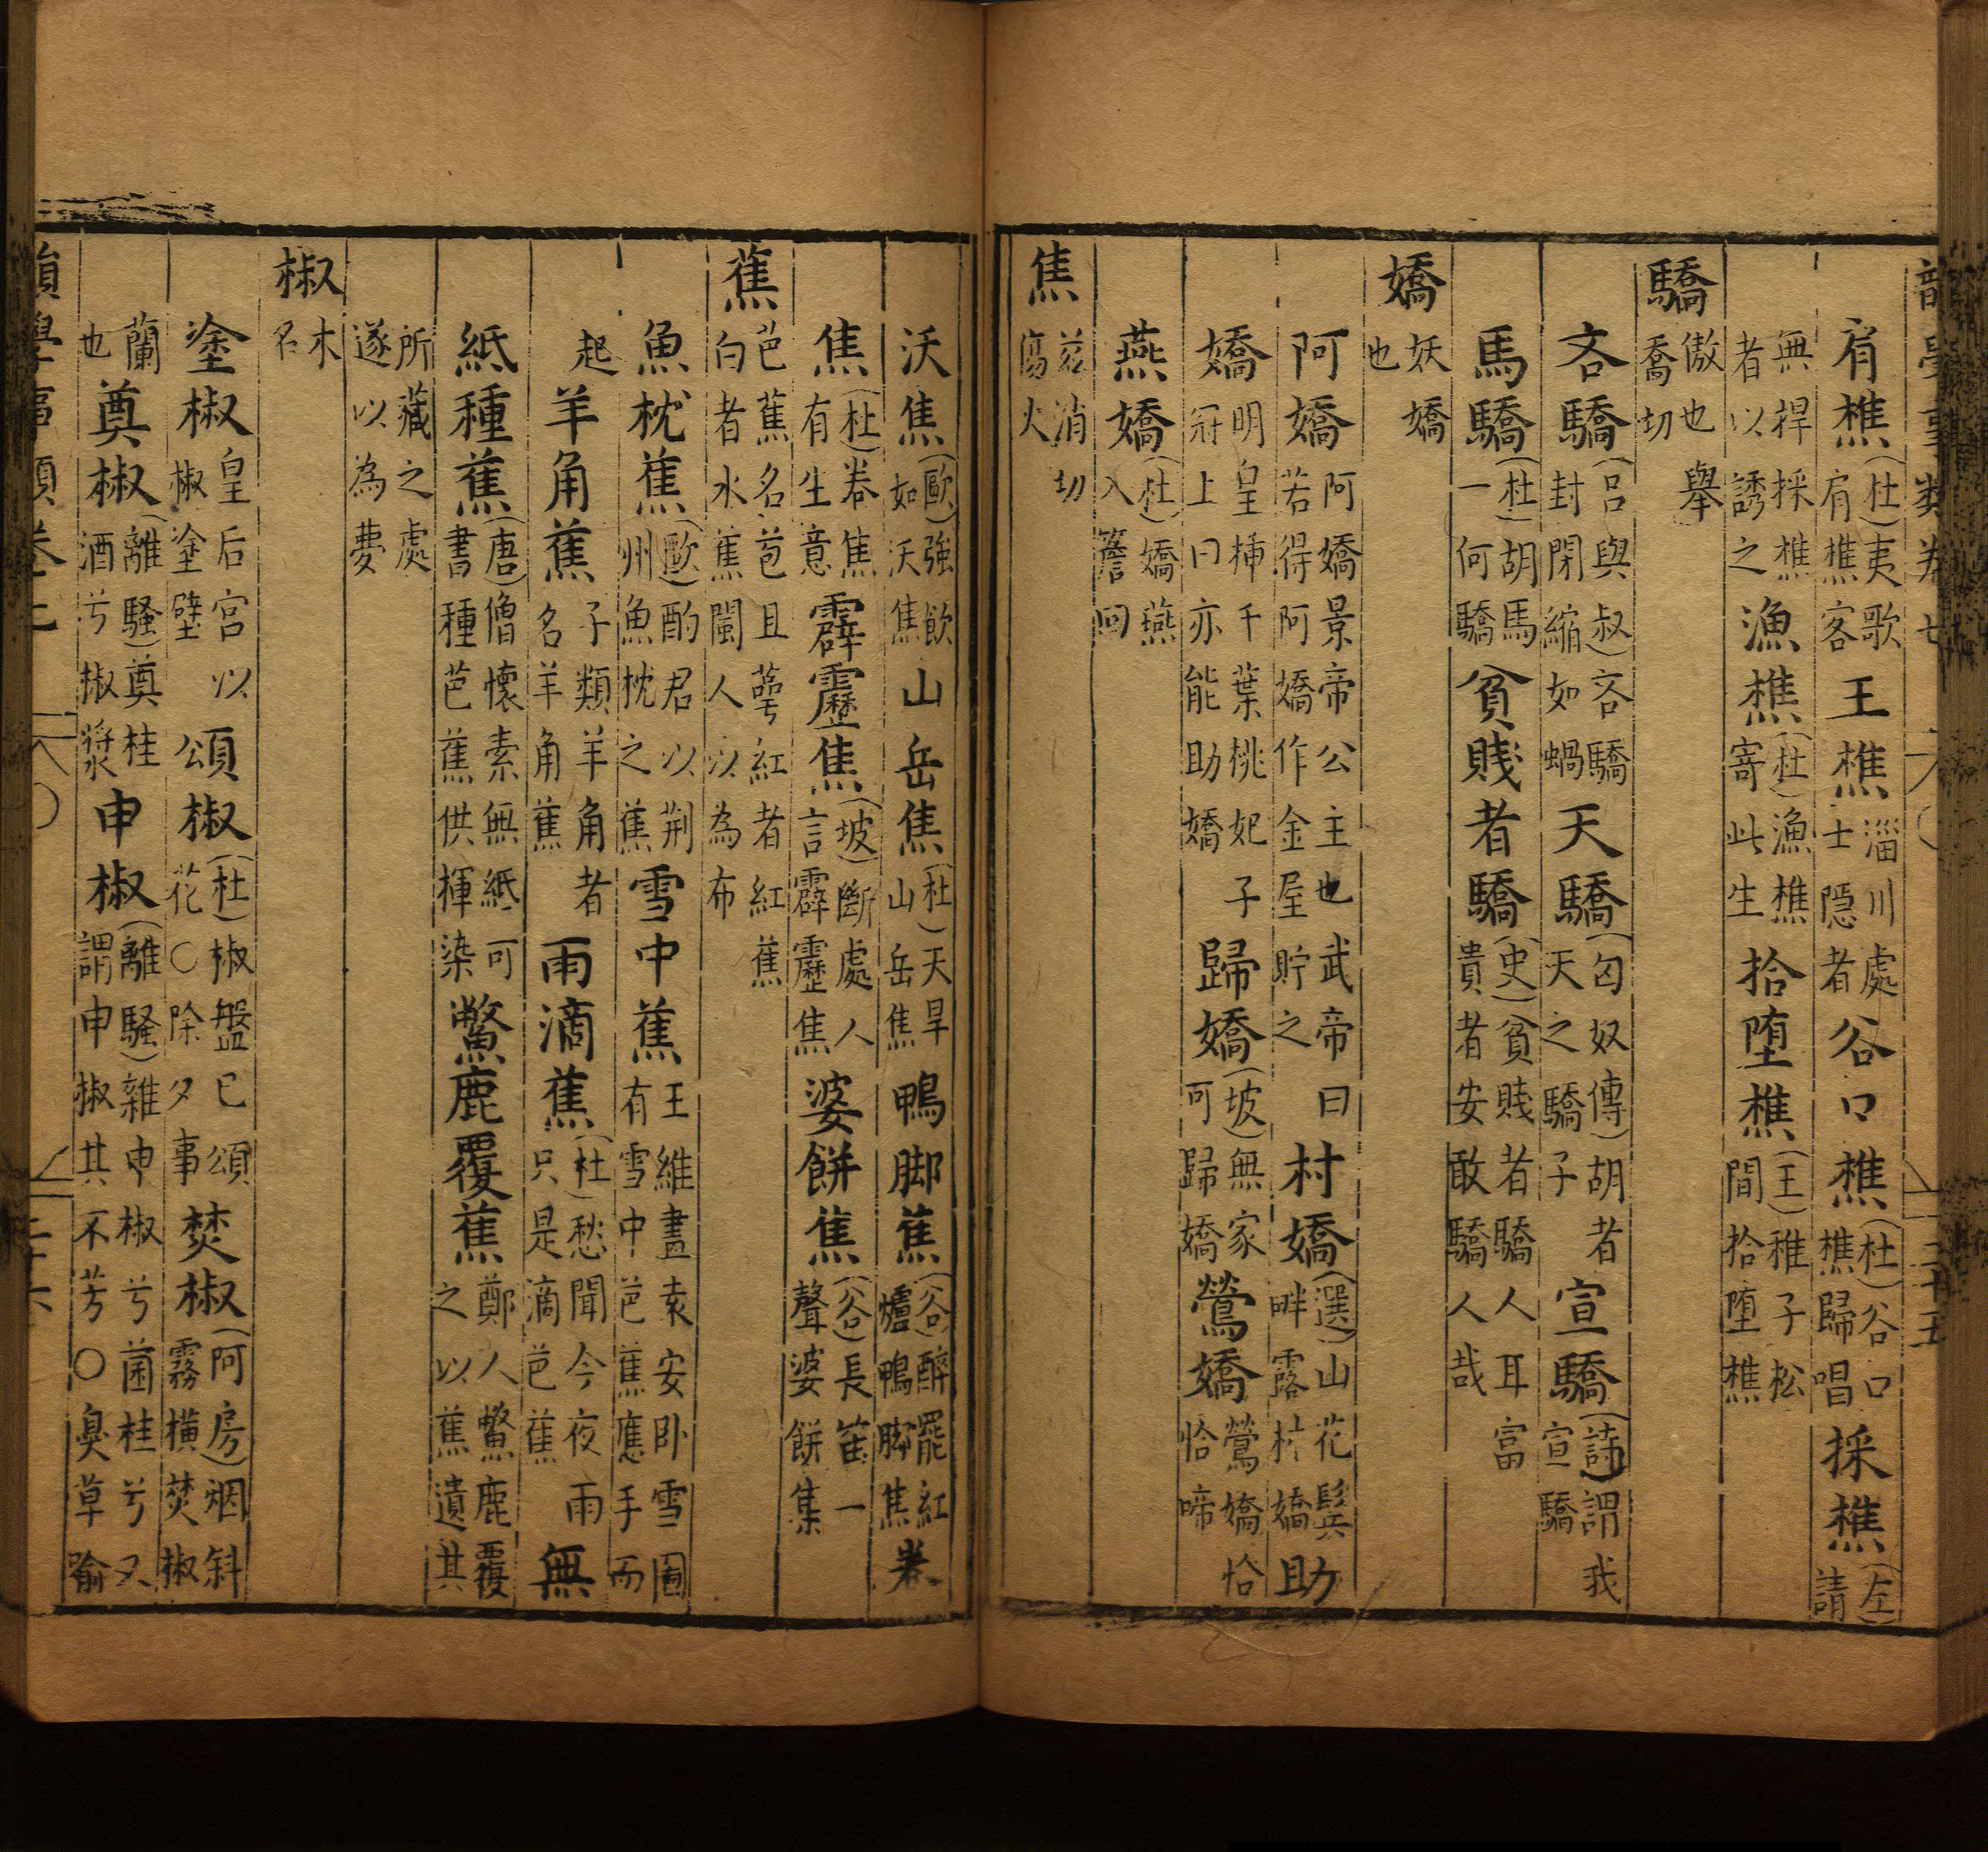 韻學事類卷七 二十五
肩樵(杜)夷歌肩樵客王樵淄川處士隱者谷口樵(杜)谷口樵歸唱採樵(左)請
無捍採樵者以誘之漁樵(杜)漁樵寄此生拾墮樵(王)稚子松間拾墮樵
驕傲也舉喬切
吝驕(呂與叔)吝驕封閉縮如蝸天驕(匈奴傳)胡者天之驕子宣驕(詩)謂我宣驕
馬驕(杜)胡馬一何驕貧賤者驕(史)貧賤者驕人耳富貴者安敢驕人哉
嬌妖嬌也
阿嬌阿嬌景帝公主也武帝曰若得阿嬌作金屋貯之村嬌(選)山花鬂畔露村嬌助
嬌明皇揷千葉桃妃子冠上曰亦能助嬌歸嬌(坡)無家可歸嬌鶯嬌鶯嬌恰恰啼
燕嬌(杜)嬌燕入簷回
焦茲消切傷火
沃焦(歐)強飲如沃焦山岳焦(杜)天旱山岳焦鴨脚蕉(谷)醉罷紅爐鴨脚焦卷
焦(杜)卷焦有生意霹靂焦(坡)斷處人言霹靂焦婆餅焦(谷)長笛一聲婆餅集
蕉芭蕉名苞且蕚紅者紅蕉白者水蕉閩人以為布
魚枕蕉(歐)酌君以荆州魚枕之蕉雪中蕉王維畫袁安卧雪圖有雪中芭蕉應手而
起羊角蕉子類羊角者名羊角蕉雨滴蕉(杜)愁聞今夜雨只是滴芭蕉無
紙種蕉(唐)僧懷素無紙可書種芭蕉供揮染鱉鹿覆蕉鄭人鱉鹿覆之以蕉遺其
所藏之處遂以為夢
椒木名
塗椒皇后宮以椒塗壁頌椒(杜)椒盤已頌花〇除夕事焚椒(阿房)烟斜霧橫焚椒
蘭也奠椒(離騷)奠桂酒兮椒漿申椒(離騷)雜申椒兮菌桂兮又謂申椒其不芳〇臭草喻
韻學事類卷七 二十六